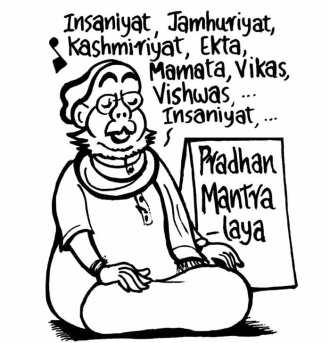 Insaniyat, Jamhuriyat,
Kashmiriyat, Ekta,
Mamata, Vikas,
Vishwas, ...
Insaniyat, ...
Pradhan
Mantra
-laya